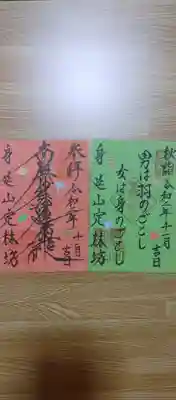 秋詣 令和二年十一月吉日
男は羽のごとし
女は身のごとし
身延山定林坊
令和二年十一月吉日
南無妙法蓮華経
身延山定林坊